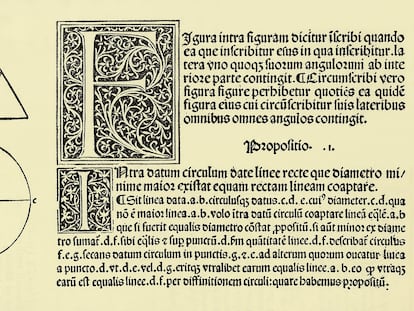 Figura intra figuram dicitur īscribi quando
ea que inscribitur eius in qua inscribitur. la
tera vno quoqꝫ suorum angulorum ab inte
riore parte contingit. ¶Circumscribi vero
figura figure perhibetur quotiēs ea quidē
figura eius cui circūscribitur suis lateribus
omnibus omnes angulos contingit.
Propositio .1.
INtra datum circulum date linee recte que diametro mi
nime maior existat equam rectam lineam coaptare.
¶Sit linea data .a.b. circulusqꝫ datus .c.d.e. cuiꝰ diameter .c.d. qua
nō ē maior linea .a.b. volo ītra datū circulū coaptare lineā eq̄lē .a.b
que si fuerit equalis diametro cōstat ꝓpositū. si aūt minor ex diame
tro sumaꝉ .d.f. sibi eq̄lis ⁊ sup punctū .d. fm quātitatē linee .d.f. describaꝉ circulus
f.e.g. secans datum circulum in punctis .g. ⁊ .e. ad alterum quorum ducatur linea
a puncto .d. vt .d.e. vel .d.g. eritqꝫ vtralibet earum equalis linee .a.b. eo ꝙ vtraqꝫ
earū est equalis linee .d.f. per diffinitionem circuli: quare habemus propositū.
c